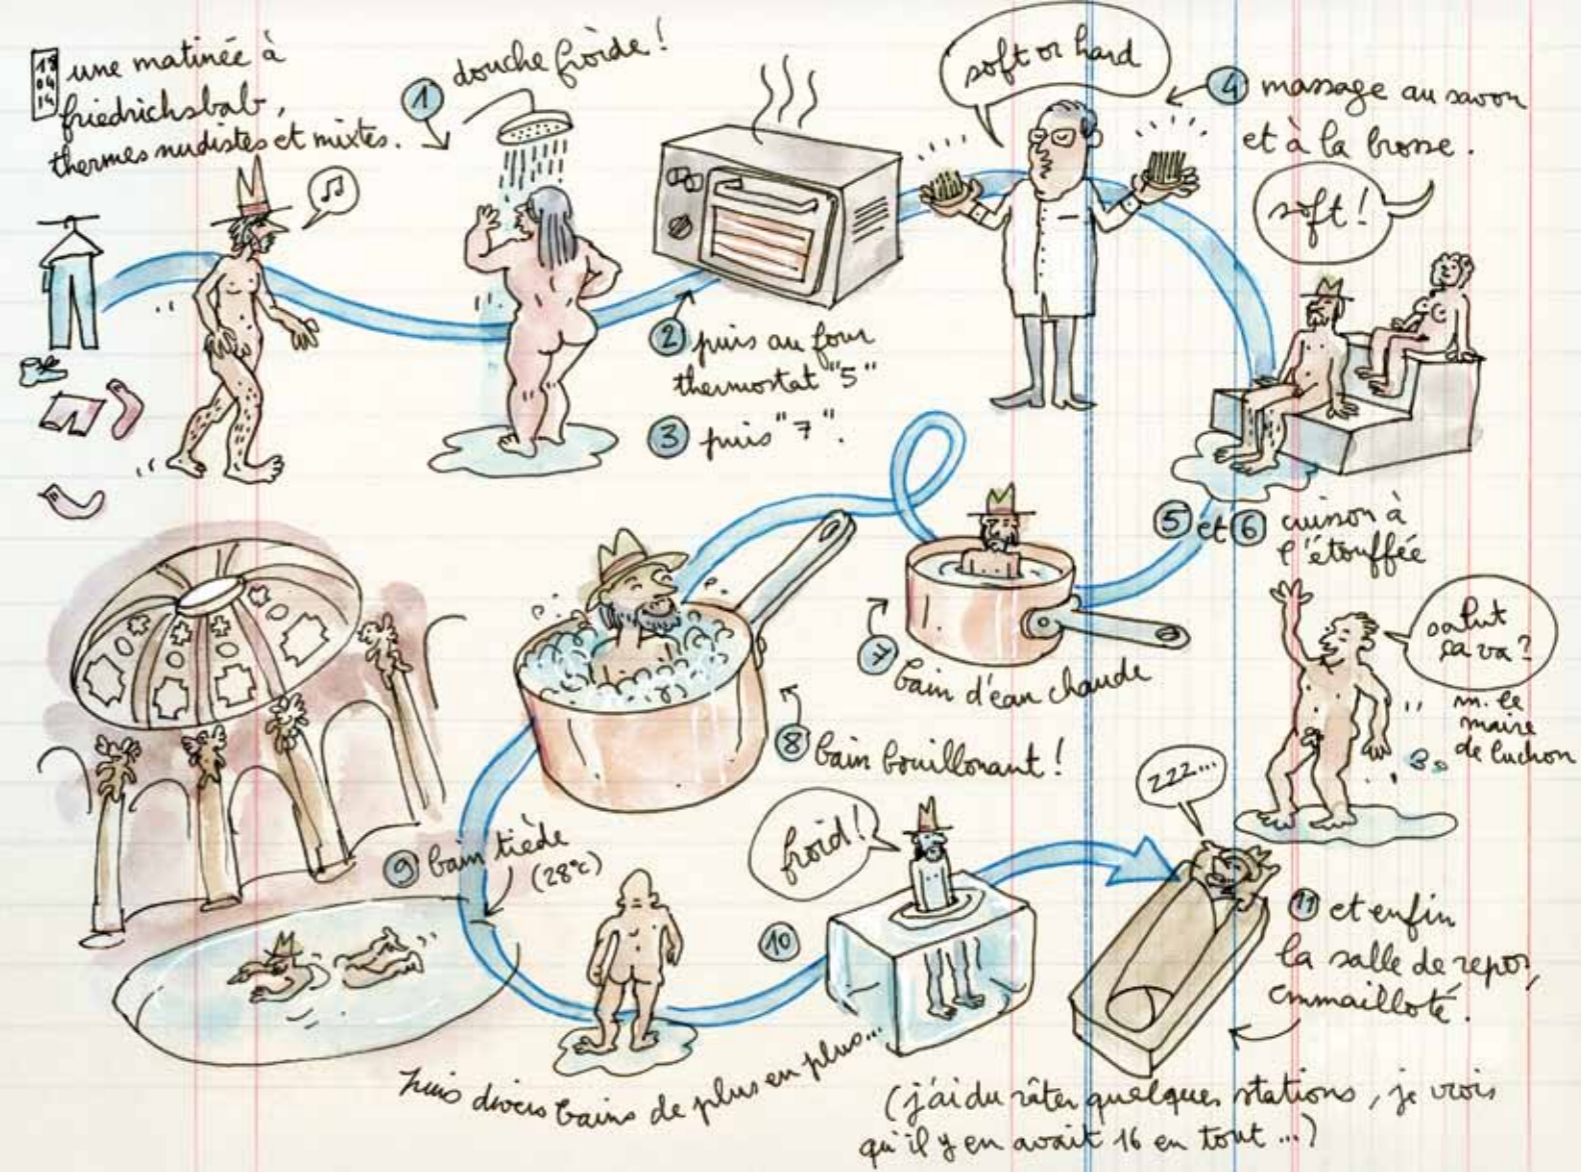 18
04
14
une matinée à
friedrichsbab,
thermes nudistes et mixtes.
1 douche froide!
soft or hard
4 massage au savon
et à la brosse.
soft!
2 puis au four
thermostat "5"
3 puis "7".
5 et 6 cuisson à
l'étouffée
7 bain d'eau chaude
8 bain bouillonant!
salut
ça va?
m. le
maire
de luchon
9 bain tiède
(28°c)
10
froid!
puis divers bains de plus en plus...
zzz...
11 et enfin
la salle de repos,
emmailloté.
(j'ai du râter quelques stations, je crois
qu'il y en avait 16 en tout...)